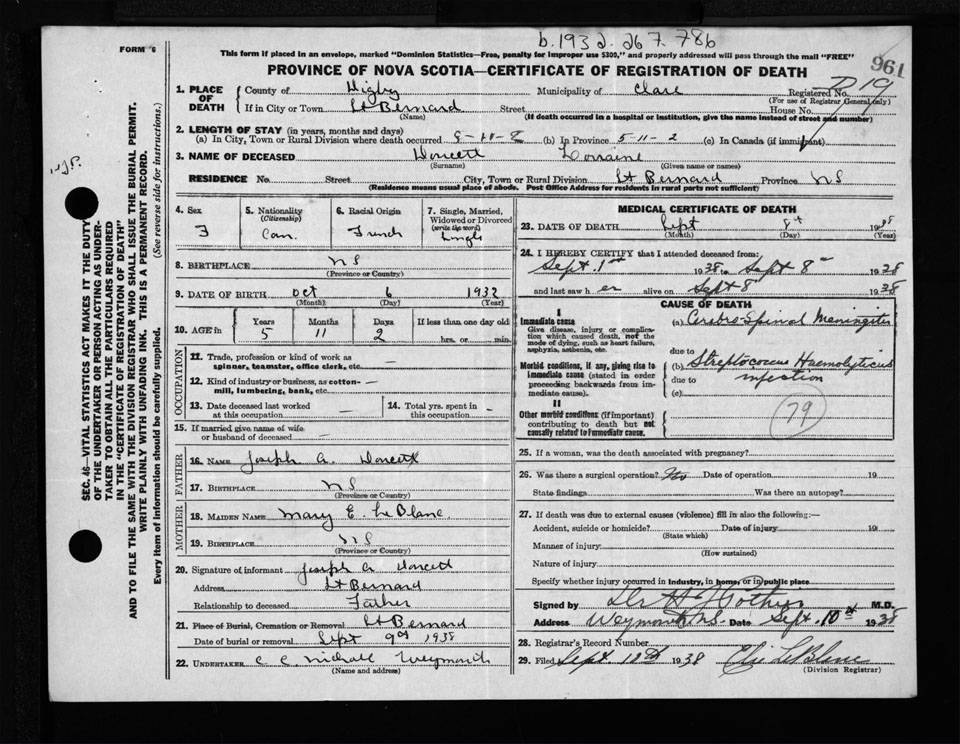 b.1932. 267.786
961
FORM 6
This form if placed in an envelope, marked "Dominion Statistics—Free, penalty for improper use $300," and properly addressed will pass through the mail "FREE"
PROVINCE OF NOVA SCOTIA—CERTIFICATE OF REGISTRATION OF DEATH
1. PLACE OF DEATH
County of Digby Municipality of Clare Registered No. 19
(For use of Registrar General only)
If in City or Town St Bernard Street House No.
(Name) (If death occurred in a hospital or institution, give the name instead of street and number)
2. LENGTH OF STAY (in years, months and days)
(a) In City, Town or Rural Division where death occurred (b) In Province 5-11-2 (c) In Canada (if immigrant)
3. NAME OF DECEASED Doucett Lorraine
(Surname) (Given name or names)
RESIDENCE No. Street City, Town or Rural Division St Bernard Province NS
(Residence means usual place of abode. Post Office Address for residents in rural parts not sufficient)
4. Sex F
5. Nationality (Citizenship) Can.
6. Racial Origin French
7. Single, Married, Widowed or Divorced (write the word) Single
8. BIRTHPLACE NS
(Province or Country)
9. DATE OF BIRTH Oct 6 1932
(Month) (Day) (Year)
10. AGE in Years Months Days If less than one day old
5 11 2 hrs. or min.
OCCUPATION
11. Trade, profession or kind of work as spinner, teamster, office clerk, etc. —
12. Kind of industry or business, as cotton-mill, lumbering, bank, etc. —
13. Date deceased last worked at this occupation —
14. Total yrs. spent in this occupation —
15. If married give name of wife or husband of deceased —
FATHER
16. NAME Joseph A. Doucett
17. BIRTHPLACE NS
(Province or Country)
MOTHER
18. MAIDEN NAME Mary E. LeBlanc
19. BIRTHPLACE NS
(Province or Country)
20. Signature of informant Joseph A Doucett
Address St Bernard
Relationship to deceased Father
21. Place of Burial, Cremation or Removal St Bernard
Date of burial or removal Sept 9th 1938
22. UNDERTAKER C C Nichall Weymouth
(Name and address)
MEDICAL CERTIFICATE OF DEATH
23. DATE OF DEATH Sept 8th 1938
(Month) (Day) (Year)
24. I HEREBY CERTIFY that I attended deceased from:
Sept. 1st 1938 to Sept 8th 1938
and last saw her alive on Sept 8 1938
CAUSE OF DEATH
I
Immediate cause
Give disease, injury or complication which caused death, not the mode of dying, such as heart failure, asphyxia, asthenia, etc.
Morbid conditions, if any, giving rise to immediate cause (stated in order proceeding backwards from immediate cause).
II
Other morbid conditions (if important) contributing to death but not causally related to immediate cause.
(a) Cerebro-Spinal Meningitis
due to
(b) Streptococcus Haemolyticus
due to infection
(c)
79
25. If a woman, was the death associated with pregnancy?
26. Was there a surgical operation? No Date of operation 19
State findings Was there an autopsy?
27. If death was due to external causes (violence) fill in also the following:—
Accident, suicide or homicide? Date of injury 19
(State which)
Manner of injury
(How sustained)
Nature of injury
Specify whether injury occurred in industry, in home, or in public place
Signed by M.D.
Address Weymouth NS. Date Sept. 10th 1938
28. Registrar's Record Number
29. Filed Sept 1938 LeBlanc
(Division Registrar)
SEC. 46—VITAL STATISTICS ACT MAKES IT THE DUTY
OF THE UNDERTAKER OR PERSON ACTING AS UNDER-
TAKER TO OBTAIN ALL THE PARTICULARS REQUIRED
IN THE "CERTIFICATE OF REGISTRATION OF DEATH"
AND TO FILE THE SAME WITH THE DIVISION REGISTRAR WHO SHALL ISSUE THE BURIAL PERMIT.
WRITE PLAINLY WITH UNFADING INK. THIS IS A PERMANENT RECORD.
Every item of information should be carefully supplied. (See reverse side for instructions.)